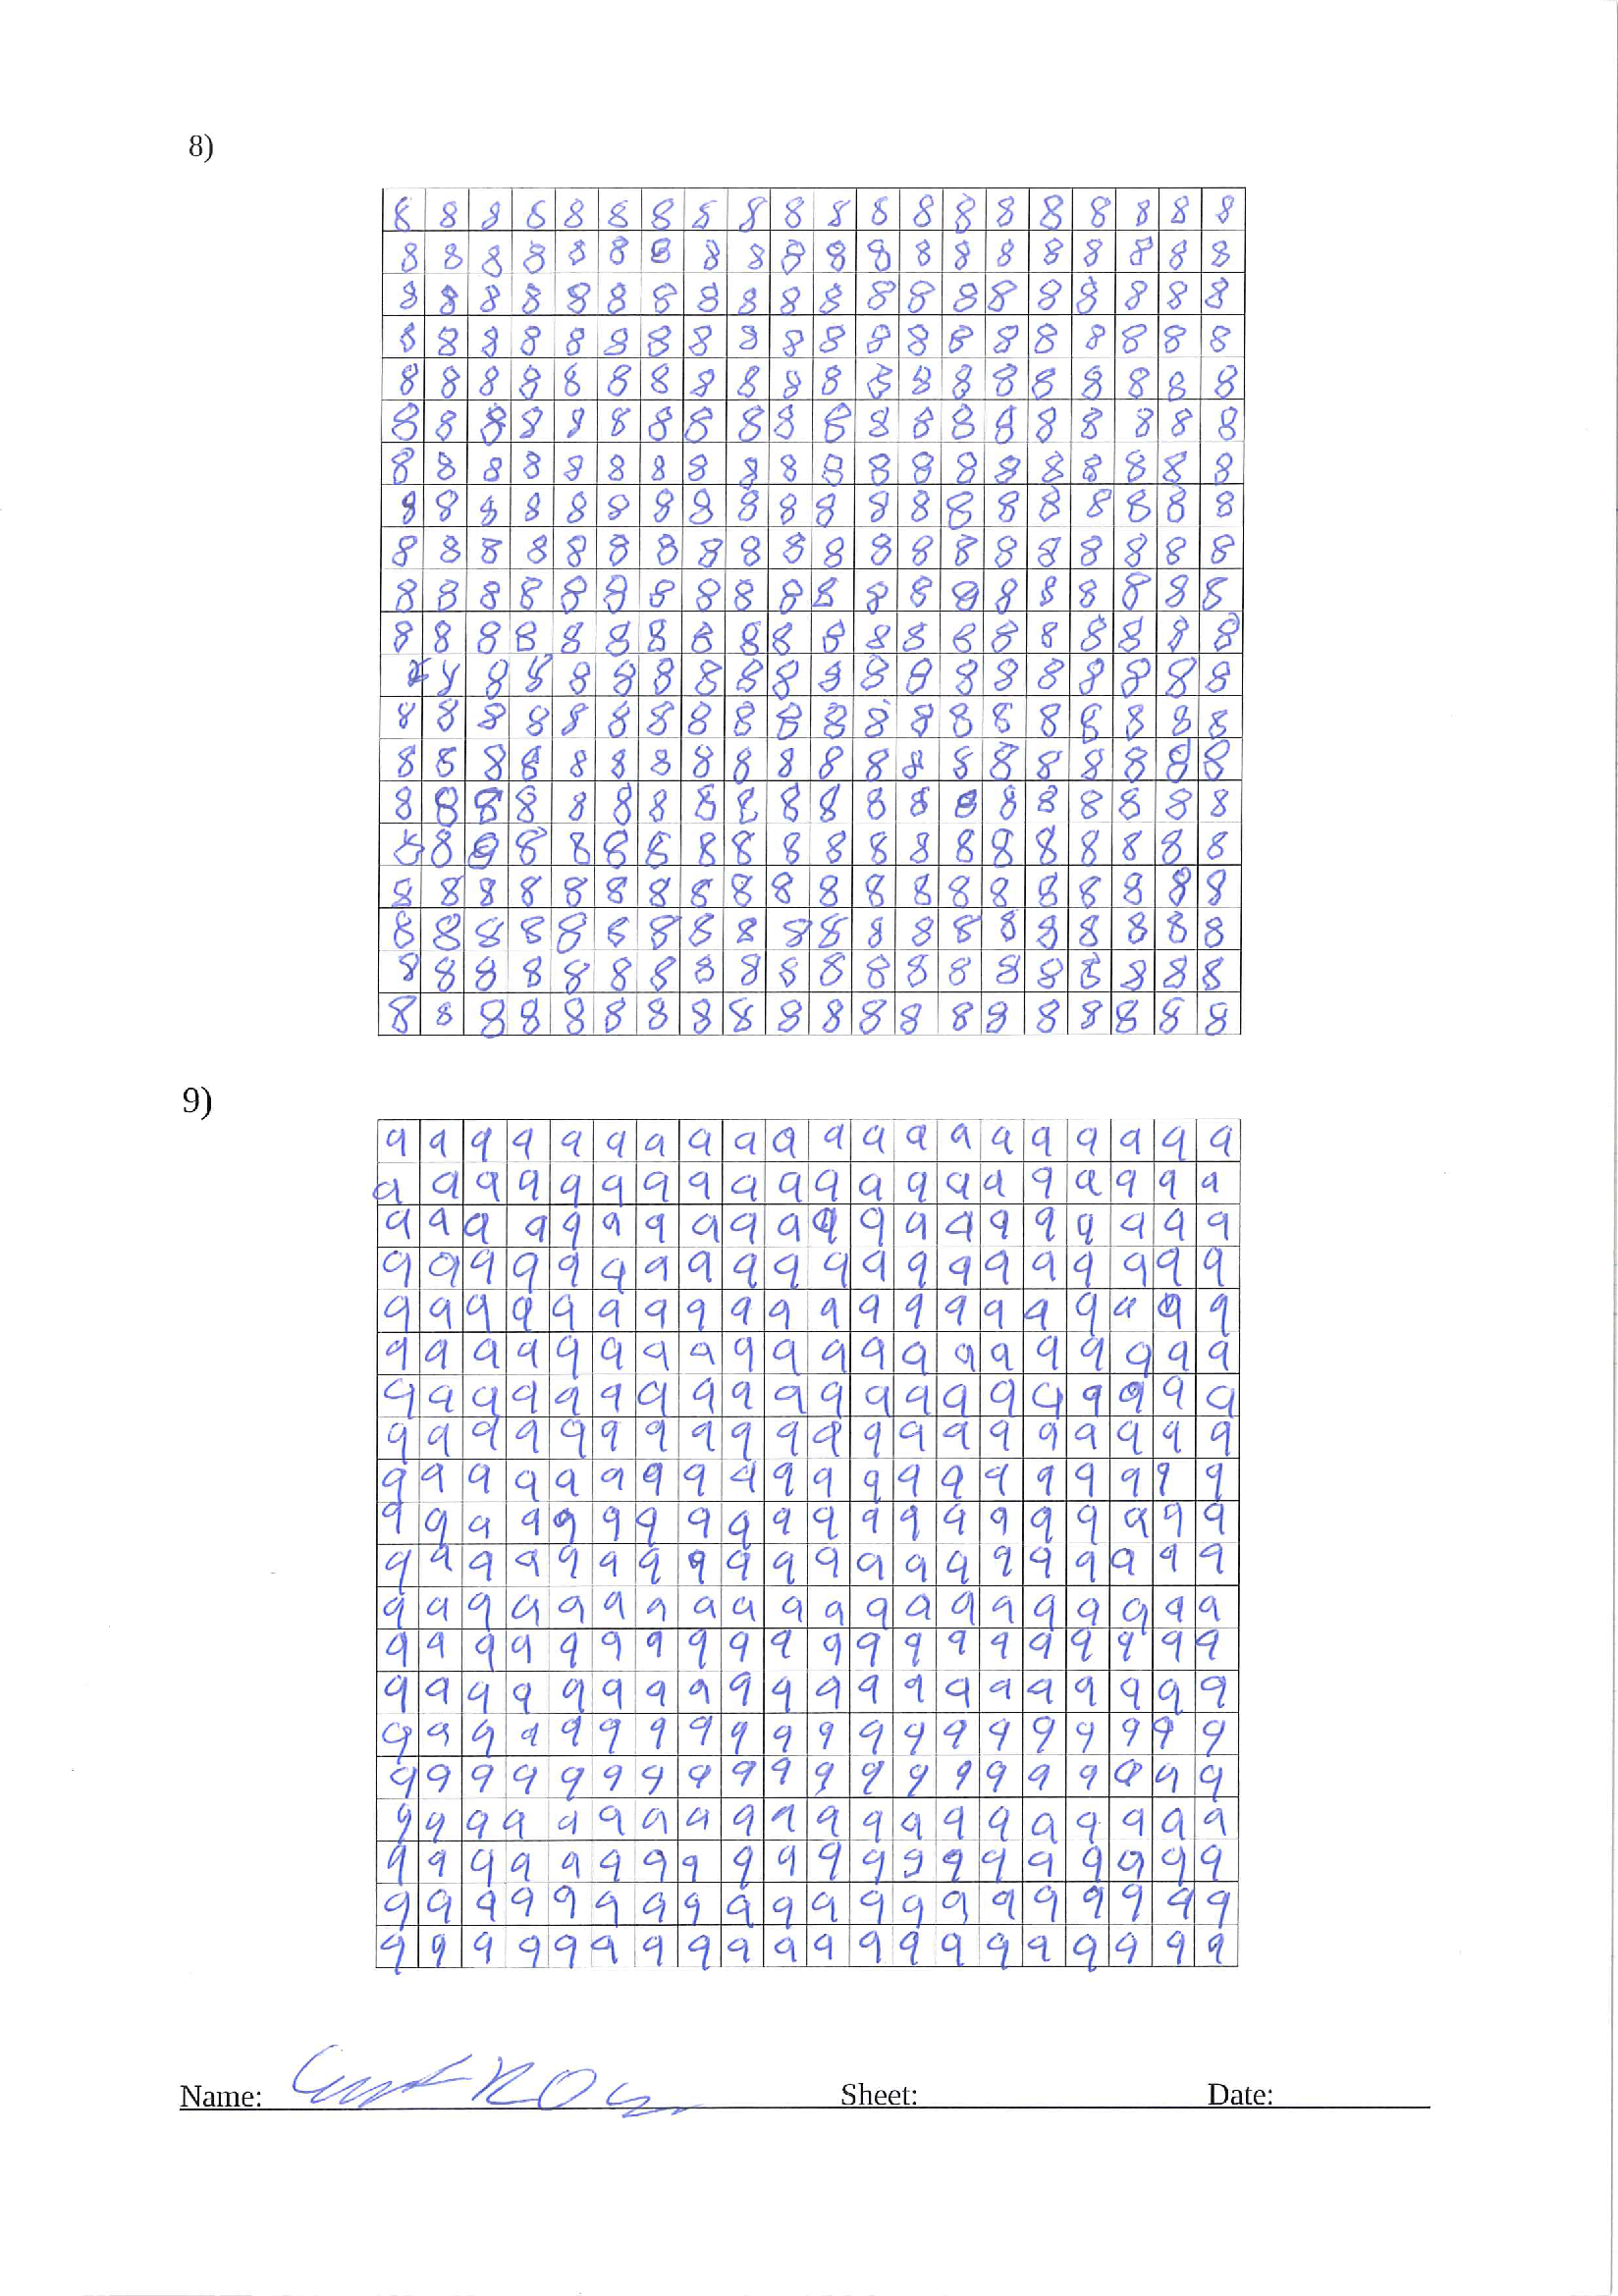 8)
8 8 8 8 8 8 8 8 8 8 8 8 8 8 8 8 8 8 8 8
8 8 8 8 8 8 8 8 8 8 8 8 8 8 8 8 8 8 8 8
8 8 8 8 8 8 8 8 8 8 8 8 8 8 8 8 8 8 8 8
8 8 8 8 8 8 8 8 8 8 8 8 8 8 8 8 8 8 8 8
8 8 8 8 8 8 8 8 8 8 8 8 8 8 8 8 8 8 8 8
8 8 8 8 8 8 8 8 8 8 8 8 8 8 8 8 8 8 8 8
8 8 8 8 8 8 8 8 8 8 8 8 8 8 8 8 8 8 8 8
8 8 8 8 8 8 8 8 8 8 8 8 8 8 8 8 8 8 8 8
8 8 8 8 8 8 8 8 8 8 8 8 8 8 8 8 8 8 8 8
8 8 8 8 8 8 8 8 8 8 8 8 8 8 8 8 8 8 8 8
8 8 8 8 8 8 8 8 8 8 8 8 8 8 8 8 8 8 8 8
8 8 8 8 8 8 8 8 8 8 8 8 8 8 8 8 8 8 8 8
8 8 8 8 8 8 8 8 8 8 8 8 8 8 8 8 8 8 8 8
8 8 8 8 8 8 8 8 8 8 8 8 8 8 8 8 8 8 8 8
8 8 8 8 8 8 8 8 8 8 8 8 8 8 8 8 8 8 8 8
8 8 8 8 8 8 8 8 8 8 8 8 8 8 8 8 8 8 8 8
8 8 8 8 8 8 8 8 8 8 8 8 8 8 8 8 8 8 8 8
8 8 8 8 8 8 8 8 8 8 8 8 8 8 8 8 8 8 8 8
8 8 8 8 8 8 8 8 8 8 8 8 8 8 8 8 8 8 8 8
8 8 8 8 8 8 8 8 8 8 8 8 8 8 8 8 8 8 8 8
9)
9 9 9 9 9 9 9 9 9 9 9 9 9 9 9 9 9 9 9 9
9 9 9 9 9 9 9 9 9 9 9 9 9 9 9 9 9 9 9 9
9 9 9 9 9 9 9 9 9 9 9 9 9 9 9 9 9 9 9 9
9 9 9 9 9 9 9 9 9 9 9 9 9 9 9 9 9 9 9 9
9 9 9 9 9 9 9 9 9 9 9 9 9 9 9 9 9 9 9 9
9 9 9 9 9 9 9 9 9 9 9 9 9 9 9 9 9 9 9 9
9 9 9 9 9 9 9 9 9 9 9 9 9 9 9 9 9 9 9 9
9 9 9 9 9 9 9 9 9 9 9 9 9 9 9 9 9 9 9 9
9 9 9 9 9 9 9 9 9 9 9 9 9 9 9 9 9 9 9 9
9 9 9 9 9 9 9 9 9 9 9 9 9 9 9 9 9 9 9 9
9 9 9 9 9 9 9 9 9 9 9 9 9 9 9 9 9 9 9 9
9 9 9 9 9 9 9 9 9 9 9 9 9 9 9 9 9 9 9 9
9 9 9 9 9 9 9 9 9 9 9 9 9 9 9 9 9 9 9 9
9 9 9 9 9 9 9 9 9 9 9 9 9 9 9 9 9 9 9 9
9 9 9 9 9 9 9 9 9 9 9 9 9 9 9 9 9 9 9 9
9 9 9 9 9 9 9 9 9 9 9 9 9 9 9 9 9 9 9 9
9 9 9 9 9 9 9 9 9 9 9 9 9 9 9 9 9 9 9 9
9 9 9 9 9 9 9 9 9 9 9 9 9 9 9 9 9 9 9 9
9 9 9 9 9 9 9 9 9 9 9 9 9 9 9 9 9 9 9 9
9 9 9 9 9 9 9 9 9 9 9 9 9 9 9 9 9 9 9 9
Name: Sheet: Date: